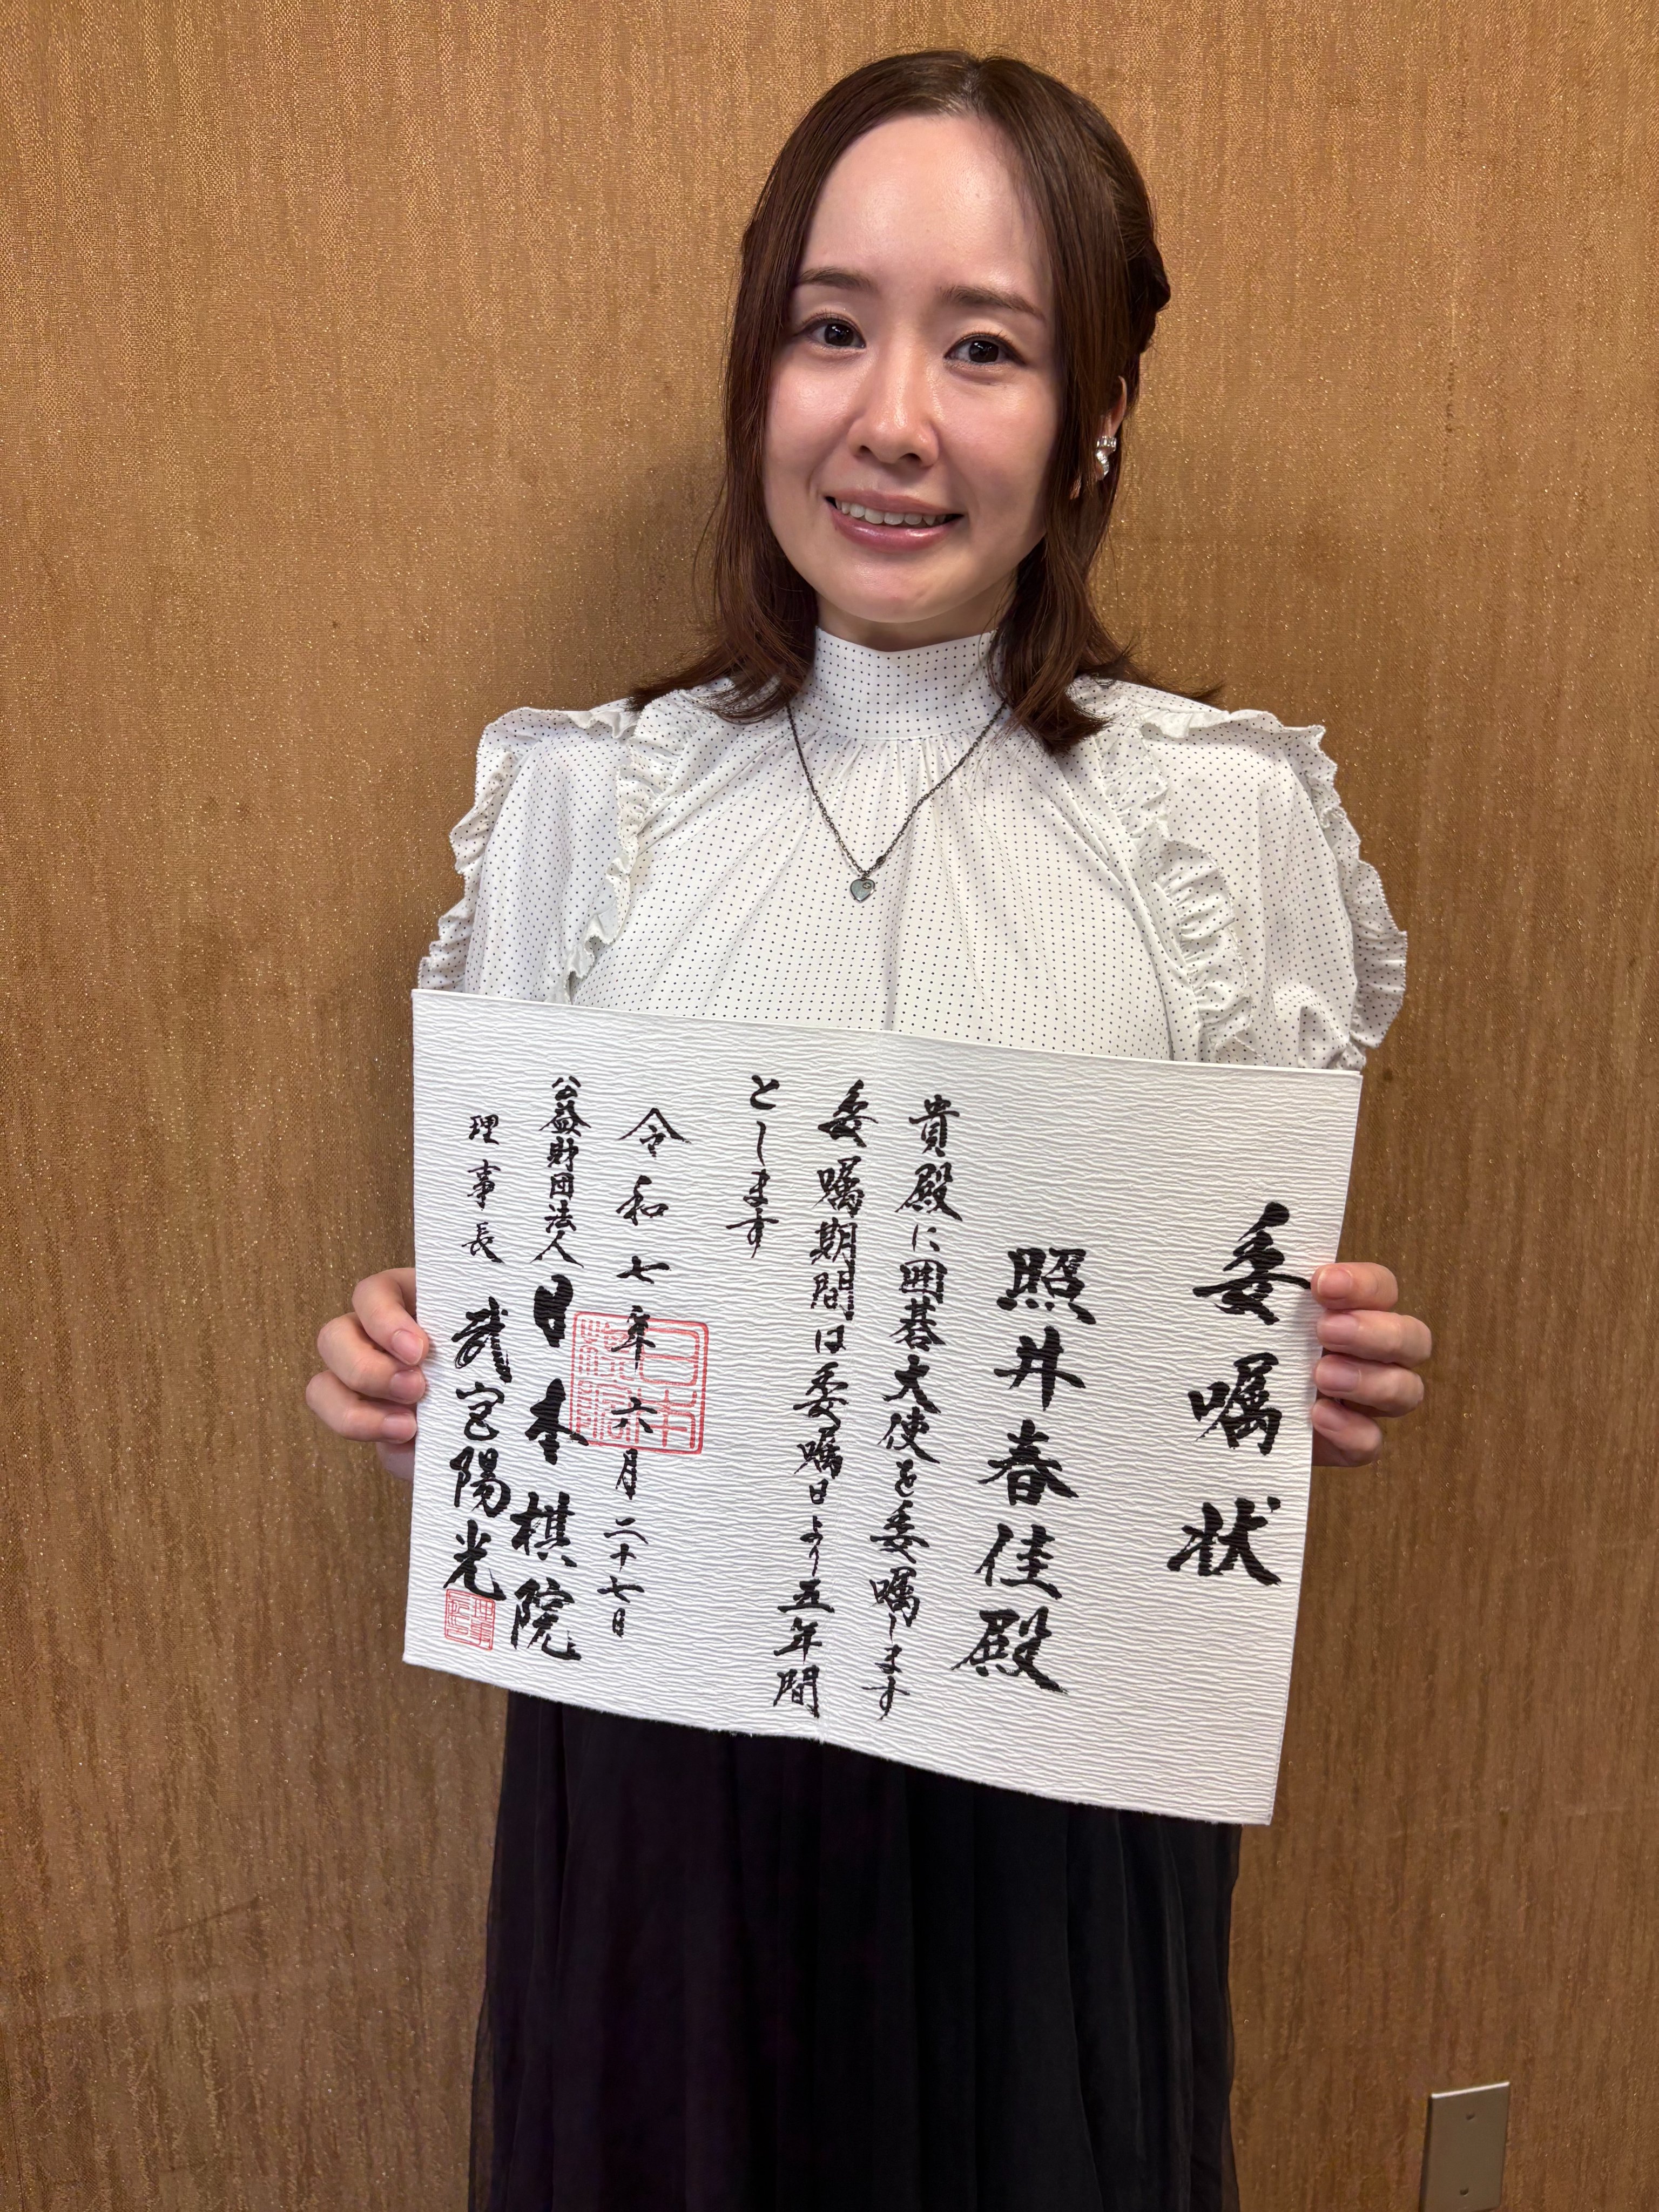 委嘱状
照井春佳殿
貴殿に囲碁大使を委嘱します
委嘱期間は委嘱日より五年間
とします
令和七年六月二十七日
公益財団法人日本棋院
理事長 武宮陽光